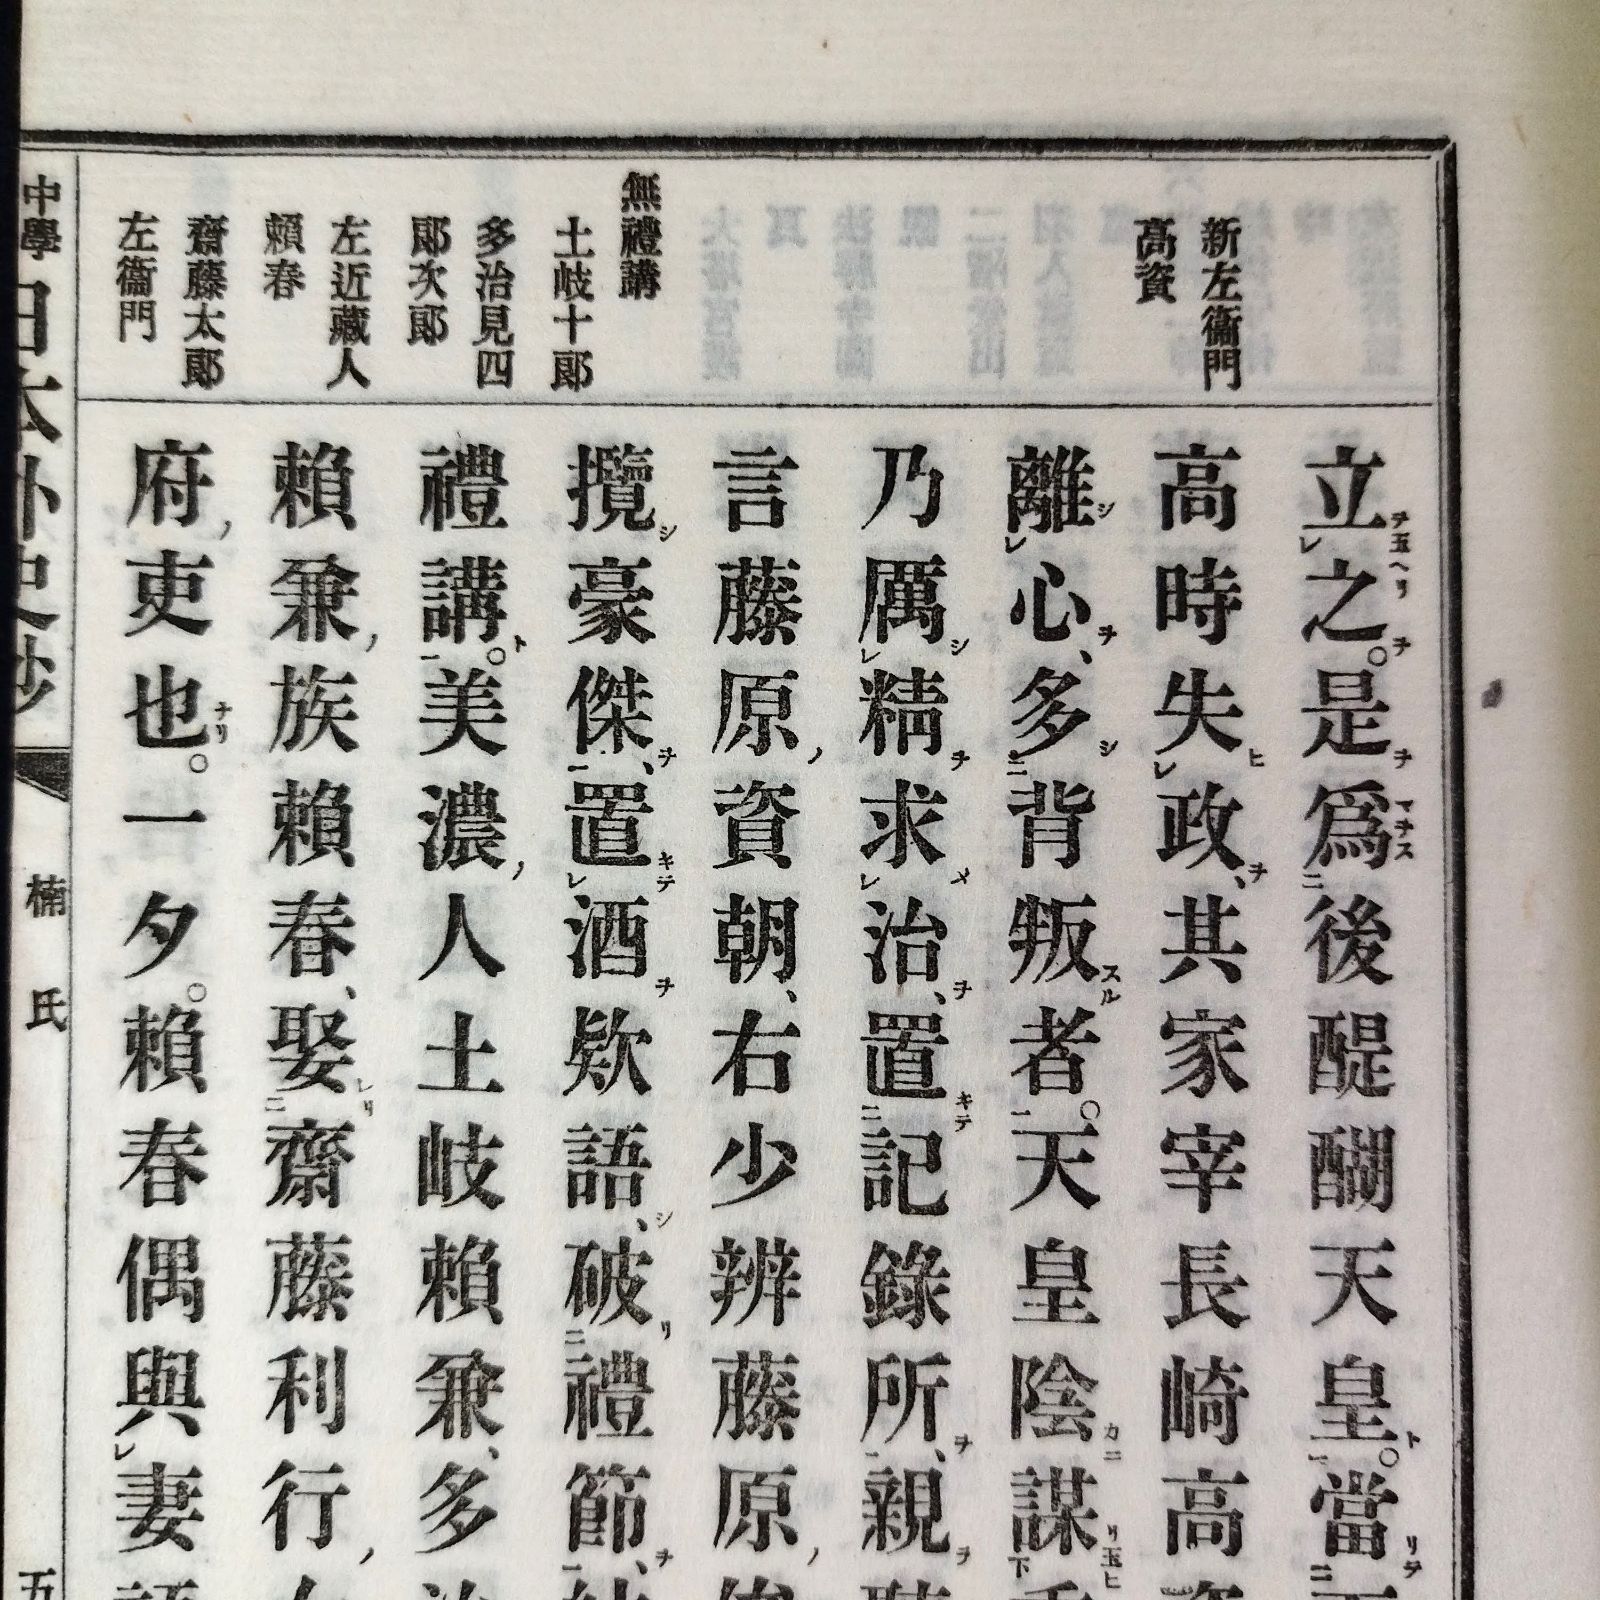 新左衞門
高資
無禮講
土岐十郞
多治見四
郞次郞
左近藏人
賴春
齋藤太郞
左衞門
立レ之。是爲ニ後醍醐天皇一。當ニ
高時失レ政、其家宰長崎高
離レ心、多ニ背叛者一。天皇陰謀下
乃厲レ精求レ治、置ニ記錄所一、親
言藤原資朝、右少辨藤原
攬豪傑一、置レ酒欵語、破ニ禮節一、
禮講一。美濃人土岐賴兼、多
賴兼族賴春、娶ニ齋藤利行
府吏也。一夕。賴春偶與レ妻
中學日本外史鈔
楠氏
五